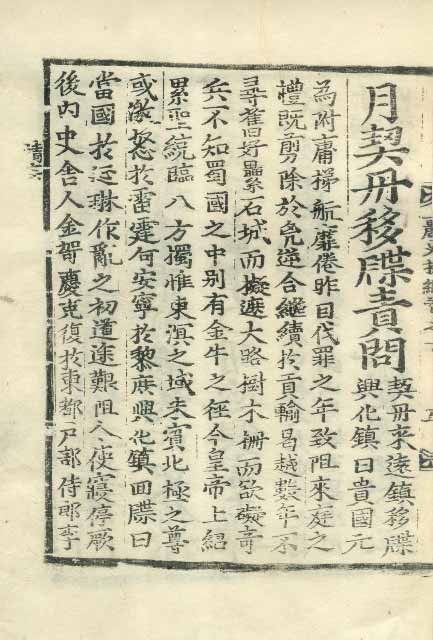 月契丹移牒責問
契丹來遠鎮移牒
興化鎮曰貴國元
為附庸梯航靡倦昨因伐罪之年致阻來庭之
禮既剪除於兇逆合繼續於貢輸曷越數年不
尋舊好纍石城而擬遮大路樹木柵而欲礙奇
兵不知蜀國之中別有金牛之徑今皇帝上紹
累聖統臨八方獨惟東溟之域未賓北極之尊
或激怒於雷霆何安寧於黎庶興化鎮回牒曰
當國於延琳作亂之初道途艱阻人使寢停厥
後內史舍人金哿慶克復於東都戶部侍郎李